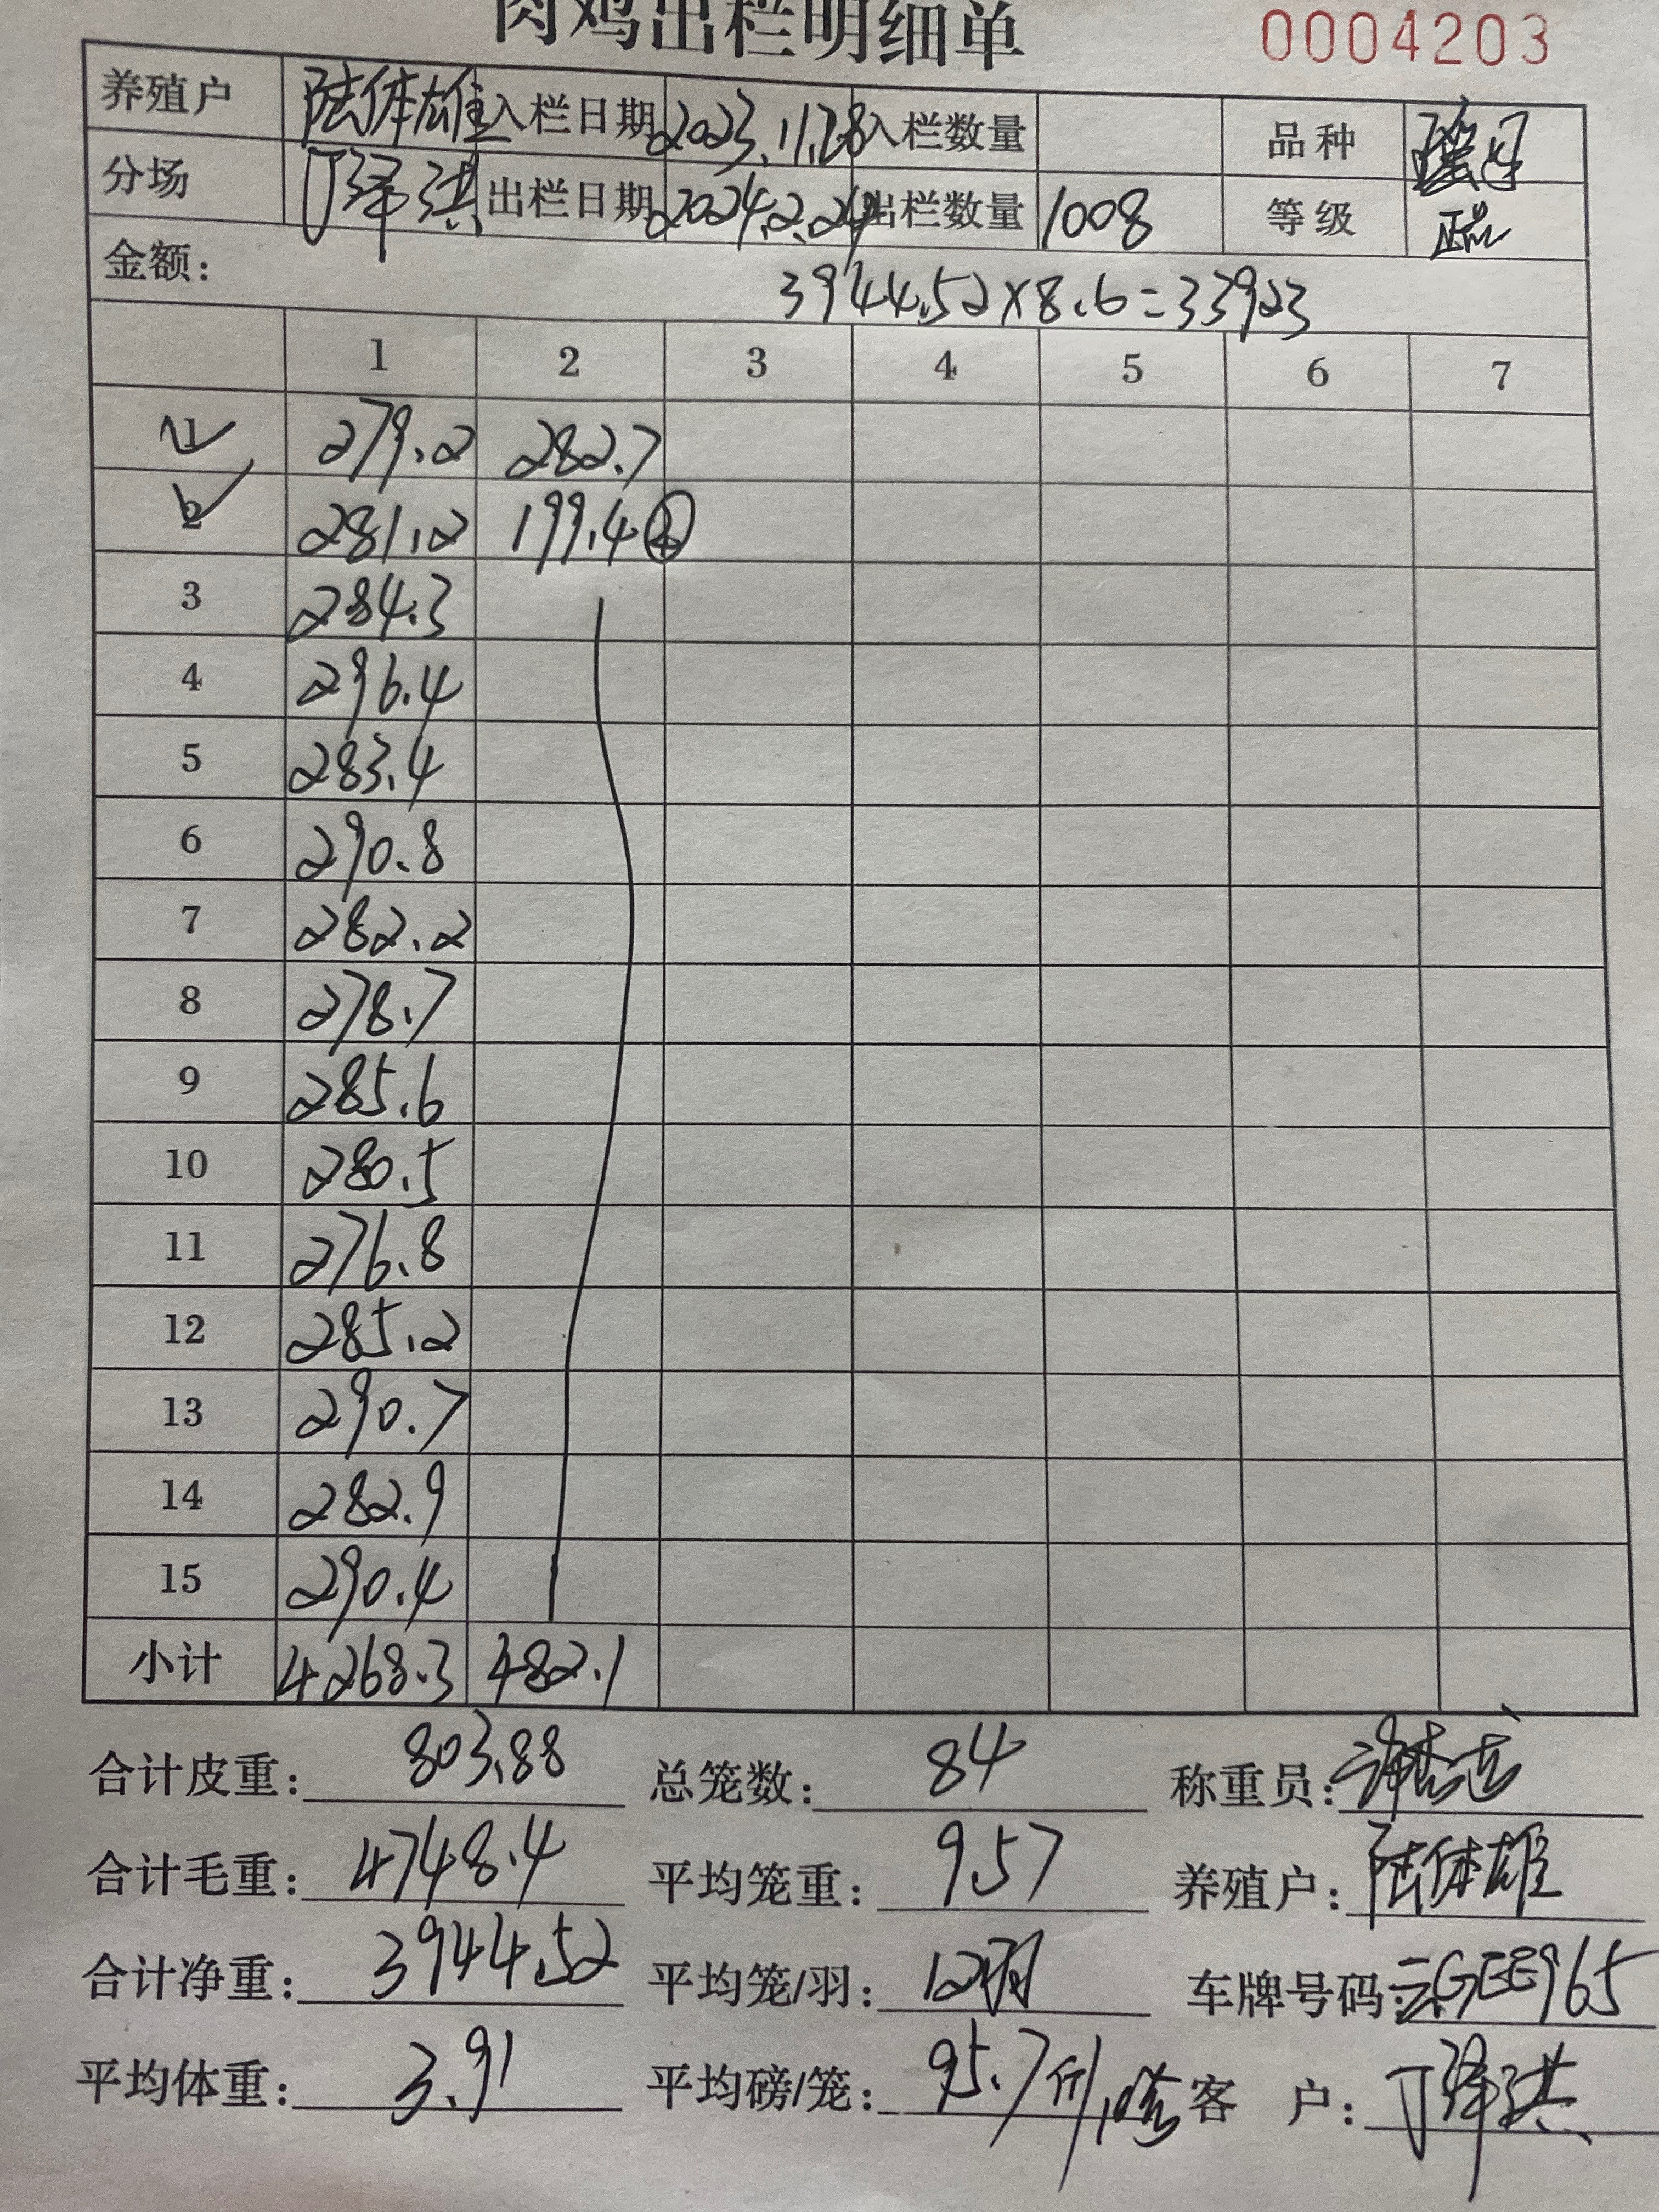 肉鸡出栏明细单 0004203
养殖户 陆体雄 入栏日期 2023.11.28 入栏数量 品种
分场 丁泽洪 出栏日期 2024.2.24 出栏数量 1008 等级 正品
金额: 3944.52×8.6=33923
1 2 3 4 5 6 7
1 279.2 282.7
2 281.2 199.4
3 284.3
4 296.4
5 283.4
6 290.8
7 282.2
8 278.7
9 285.6
10 280.5
11 276.8
12 285.2
13 290.7
14 282.9
15 290.4
小计 4268.3 482.1
合计皮重: 803.88 总笼数: 84 称重员:
合计毛重: 4748.4 平均笼重: 9.57 养殖户: 陆体雄
合计净重: 3944.52 平均笼/羽: 12羽 车牌号码: 云GEE965
平均体重: 3.91 平均磅/笼: 95.7斤/10笼 客 户: 丁泽洪